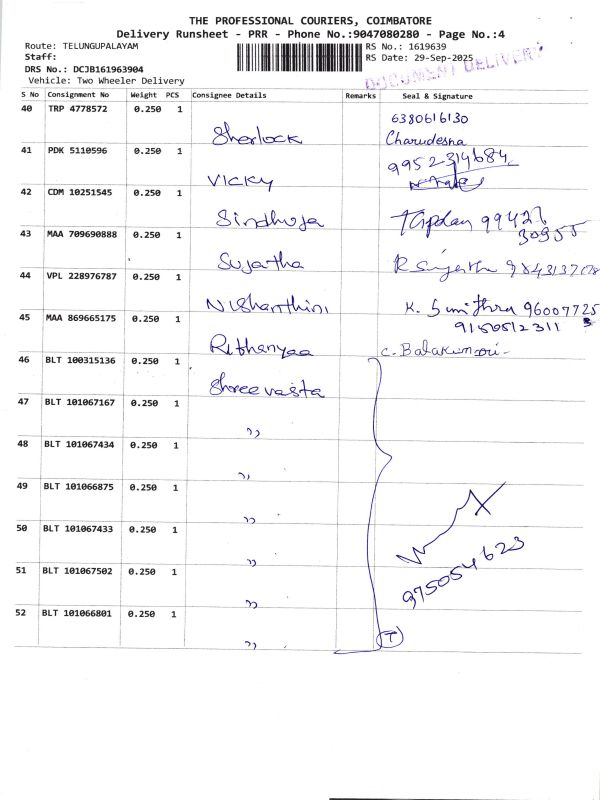 THE PROFESSIONAL COURIERS, COIMBATORE
Delivery Runsheet - PRR - Phone No.:9047080280 - Page No.:4
Route: TELUNGUPALAYAM RS No.: 1619639
Staff: RS Date: 29-Sep-2025
DRS No.: DCJB161963904 DOCUMENT DELIVERY
Vehicle: Two Wheeler Delivery
S No Consignment No Weight PCS Consignee Details Remarks Seal & Signature
40 TRP 4778572 0.250 1 6380616130
Sherlock Charudesna
41 PDK 5110596 0.250 1 9952314684
Vicky
42 CDM 10251545 0.250 1
Sindhuja 99426
30955
43 MAA 709690888 0.250 1
Sujatha
44 VPL 228976787 0.250 1
Nishanthini K. Sumithra 96007725
45 MAA 869665175 0.250 1 9150512311
Rithanyaa C. Balakumari
46 BLT 100315136 0.250 1
Shreevasta
47 BLT 101067167 0.250 1
"
48 BLT 101067434 0.250 1
"
49 BLT 101066875 0.250 1
"
50 BLT 101067433 0.250 1
"
51 BLT 101067502 0.250 1 975054623
"
52 BLT 101066801 0.250 1
" T